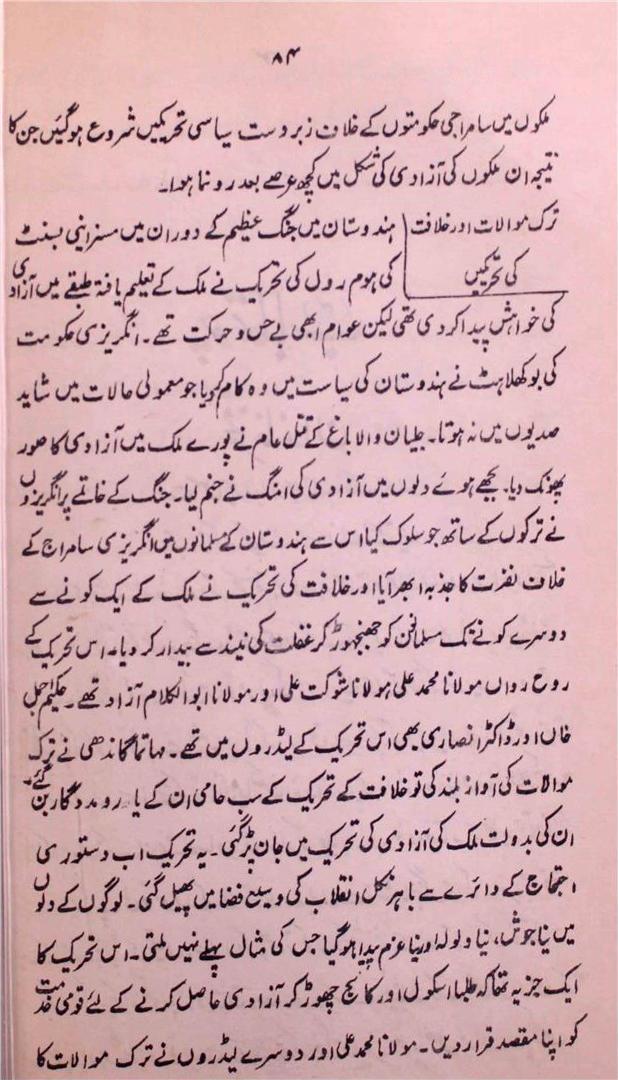 ۸۴
ملکوں میں سامراجی حکومتوں کے خلاف زبردست سیاسی تحریکیں شروع ہوگئیں جن کا
نتیجہ ان ملکوں کی آزادی کی شکل میں کچھ عرصے بعد رونما ہوا۔
ترک موالات اور خلافت ہندوستان میں جنگ عظیم کے دوران میں مسز اینی بسنٹ
کی تحریکیں کی ہوم رول کی تحریک نے ملک کے تعلیم یافتہ طبقے میں آزادی
کی خواہش پیدا کر دی تھی لیکن عوام ابھی بے حس و حرکت تھے۔ انگریزی حکومت
کی بوکھلاہٹ نے ہندوستان کی سیاست میں وہ کام کر دیا جو معمولی حالات میں شاید
صدیوں میں نہ ہوتا۔ جلیان والا باغ کے قتل عام نے پورے ملک میں آزادی کا صور
پھونک دیا۔ بجھے ہوئے دلوں میں آزادی کی امنگ نے جنم لیا۔ جنگ کے خاتمے پر انگریزوں
نے ترکوں کے ساتھ جو سلوک کیا اس سے ہندوستان کے مسلمانوں میں انگریزی سامراج کے
خلاف نفرت کا جذبہ ابھر آیا اور خلافت کی تحریک نے ملک کے ایک کونے سے
دوسرے کونے تک مسلمانوں کو جھنجھوڑ کر غفلت کی نیند سے بیدار کر دیا۔ اس تحریک کے
روح رواں مولانا محمد علی مولانا شوکت علی اور مولانا ابوالکلام آزاد تھے۔ حکیم اجمل
خاں اور ڈاکٹر انصاری بھی اس تحریک کے لیڈروں میں تھے۔ مہاتما گاندھی نے ترک
موالات کی آواز بلند کی تو خلافت کے تحریک کے سب حامی ان کے یار و مددگار بن گئے۔
ان کی بدولت ملک کی آزادی کی تحریک میں جان پڑ گئی۔ یہ تحریک اب دستوری
احتجاج کے دائرے سے باہر نکل انقلاب کی وسیع فضا میں پھیل گئی۔ لوگوں کے دلوں
میں نیا جوش، نیا ولولہ اور نیا عزم پیدا ہوگیا جس کی مثال پہلے نہیں ملتی۔ اس تحریک کا
ایک جز یہ تھا کہ طلبا اسکول اور کالج چھوڑ کر آزادی حاصل کرنے کے لئے قومی خدمت
کو اپنا مقصد قرار دیں۔ مولانا محمد علی اور دوسرے لیڈروں نے ترک موالات کا